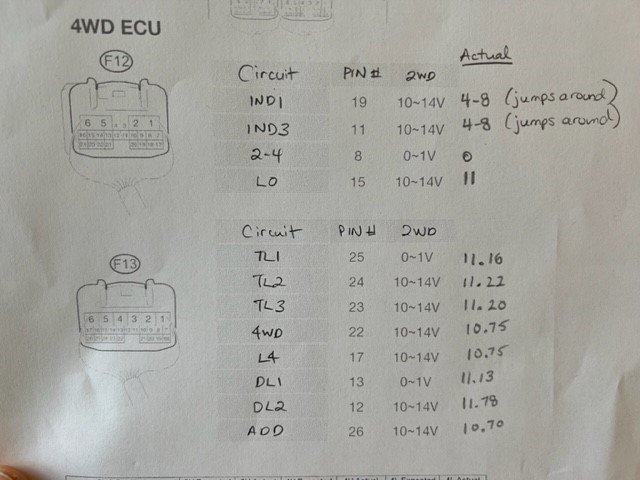 4WD ECU
Actual
F12
Circuit PIN # 2WD
IND1 19 10~14V 4-8 (jumps around)
IND3 11 10~14V 4-8 (jumps around)
2-4 8 0~1V 0
LO 15 10~14V 11
6 5 4 3 2 1
Circuit PIN # 2WD
F13
TL1 25 0~1V 11.16
TL2 24 10~14V 11.22
TL3 23 10~14V 11.20
4WD 22 10~14V 10.75
L4 17 10~14V 10.75
DL1 13 0~1V 11.13
DL2 12 10~14V 11.78
ADD 26 10~14V 10.70
6 5 4 3 2 1